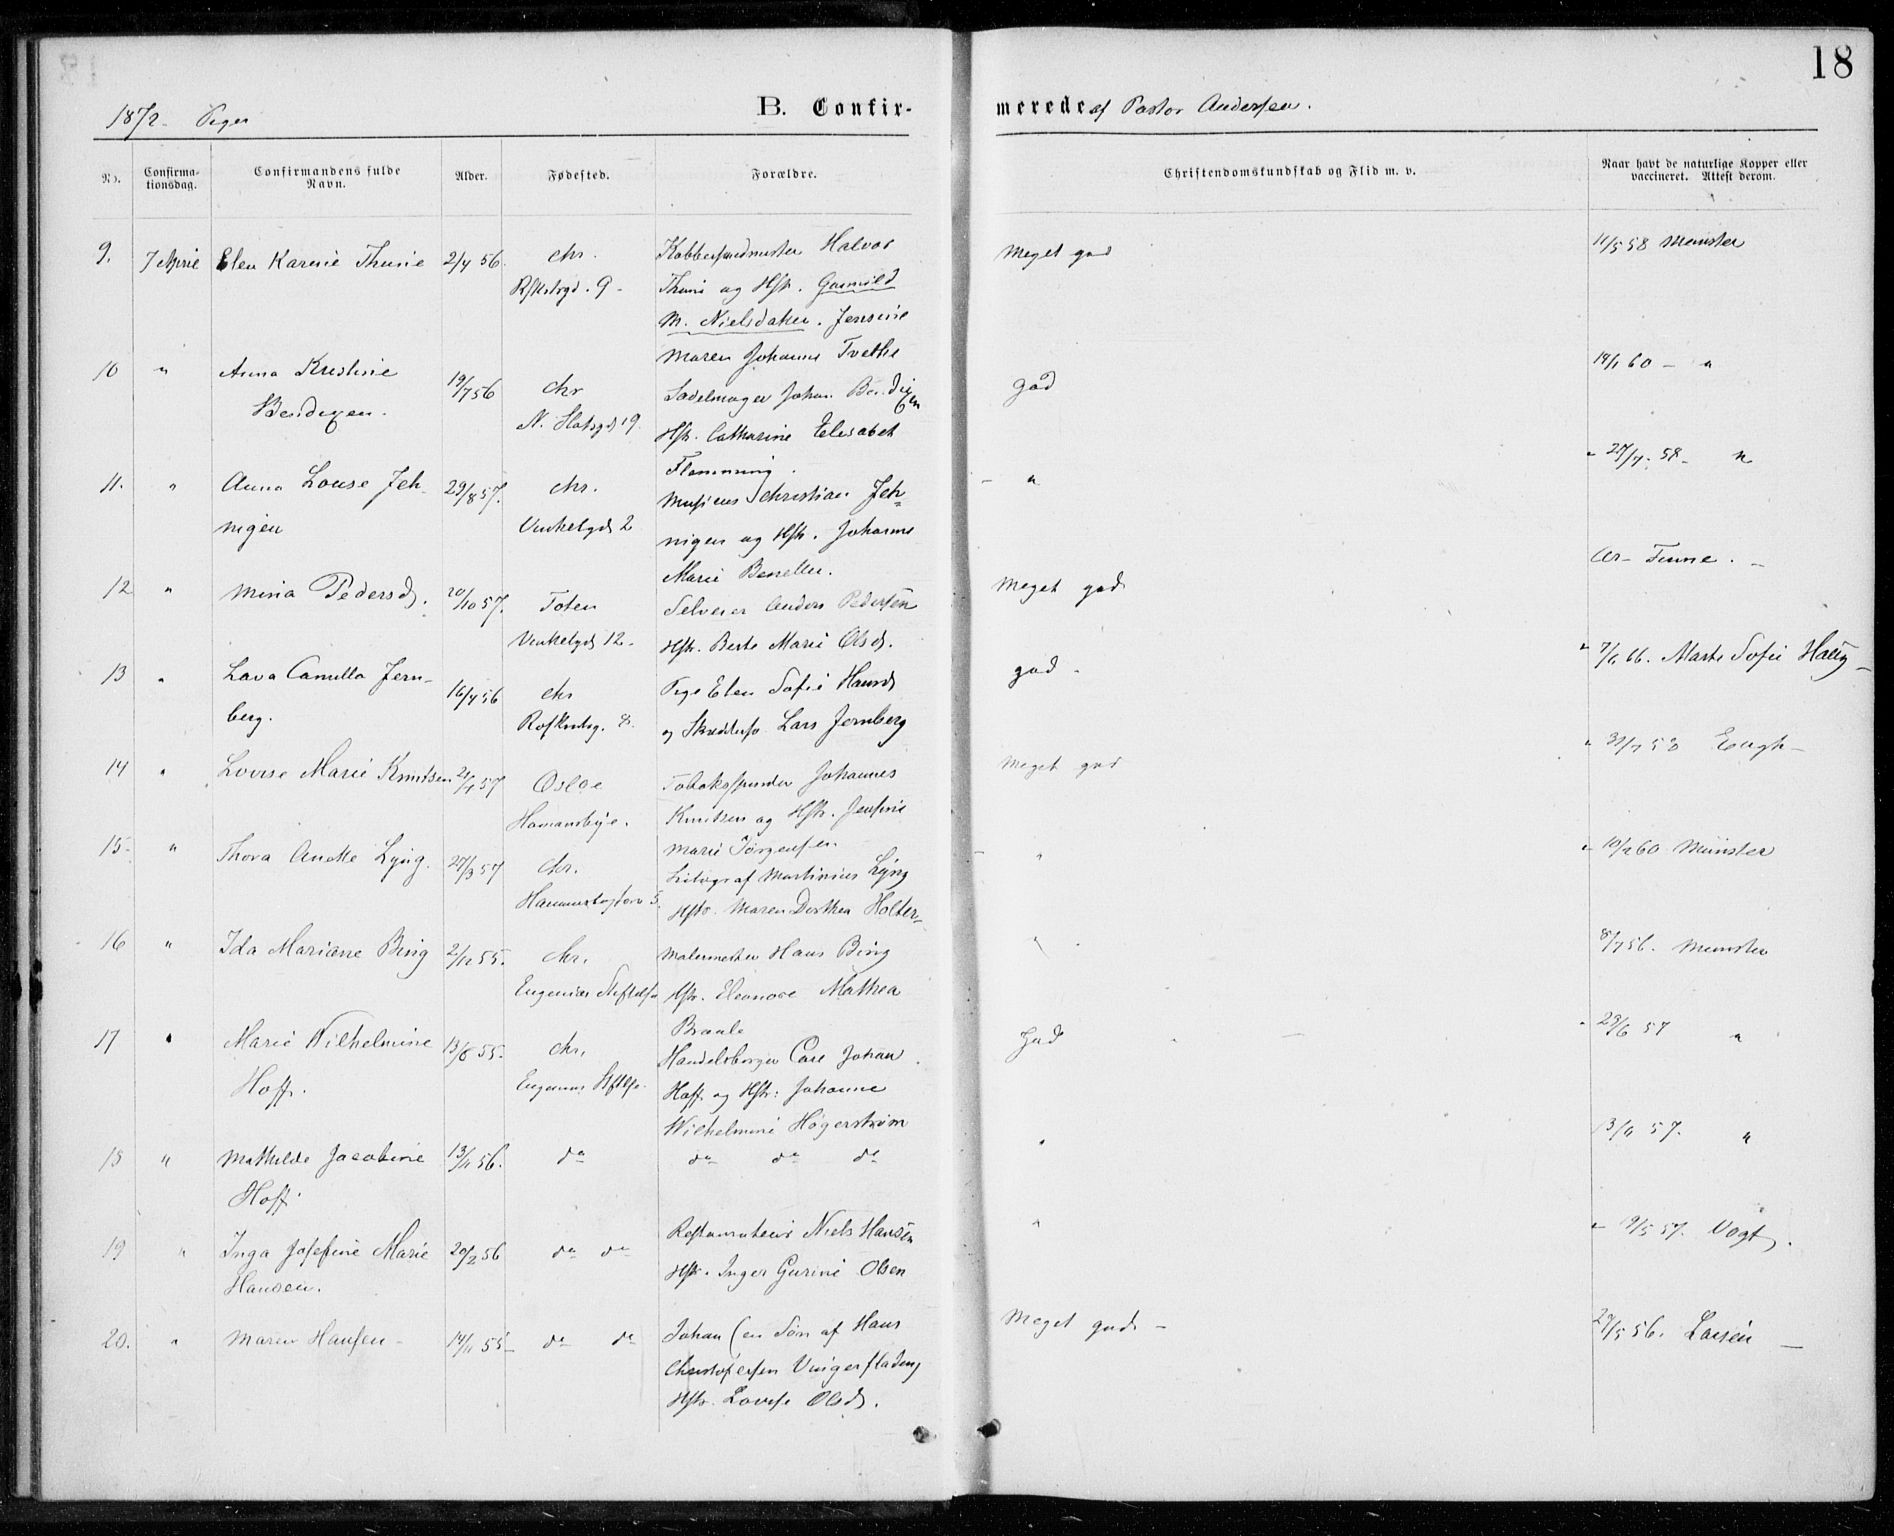 18
1872. Piger
B. Confir-
merede af Pastor Andersen.
No.
Confirma-
tionsdag.
Confirmandens fulde
Navn.
Alder.
Fødested.
Forældre.
Christendomskundskab og Flid m. v.
Naar havt de naturlige Kopper eller
vaccineret. Attest derom.
9. 7 April Elen Karine Thunie 2/4 56. Chr. Halvor Meget god 11/5 58 Münster
9 - Thuni og Hstr. Gunnild
M. Nielsdatter. Jensine
Maren Johanne Tvethe
10 " Anna Kristine 19/7 56 Chr Sadelmager Johan Bendixen god 14/1 60 - "
Bendixen. N. Slotsgd 19. Hstr. Catharine Elisabet
Flemming.
11. " Anna Louise Jeh- 29/8 57. Chr. Musicus Christian Jeh- - " " 27/7. 58 - "
nigen Vinkelgd 2 nigen og Hstr. Johanne
Marie
12 " Mina Pedersd. 20/10 57. Toten Anders Pedersen Meget god Ar- Finne. -
Vinkelgd 12. Hstr. Berte Marie Olsd.
13 " Lava Camilla Jern- 16/4 56 Chr Pige Elen Sofie Hansd god - Marte Sofie
berg. 8. og Lars Jernberg
14 " Lovise Marie Knudsen 57 Osloe Johannes Meget god
Knudsen og Hstr. Jensine
Marie Jørgensen
15- " Thora Lyng. 27/3 57 Chr. Litograf Martinius Lyng - " " 10/2 60 Münster
5. Hstr. Maren Dorthea Holter-
16 " Ida Mariane Bing 2/12 55. Chr. Malermester Hans Bing " 8/7 56. Münster
Eugenias Stiftelse Hstr. Eleonore Mathea
Braate
17 " Marie Wilhelmine 13/8 55. Chr. Handelsborger Carl Johan god " 23/6 57 "
Hoff. Eugenias Stiftelse Hoff og Hstr: Johanne
Wilhelmine Høgerstrøm
18 " Mathilde Jacobine 13/11 56. do do do do " 57. "
Hoff.
19 " Inga Josefine Marie 20/2 56 do do Restaurateur Niels Hansen " " 19/5 57. Vogt.
Hansen. Hstr. Inger Gurine Olsen
20. " Maren Hansen - 14/11 55 - do do Johan (en Søn af Hans Meget god - 29/5 56. Larsen -
Christofersen
Hstr. Lovise Olsd.